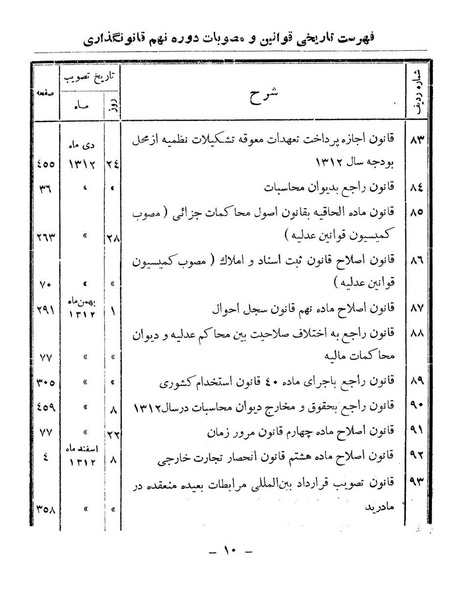 فهرست تاریخی قوانین و مصوبات دوره نهم قانونگذاری
شماره ردیف شرح تاریخ تصویب صفحه
روز ماه
۸۳ قانون اجازه پرداخت تعهدات معوقه تشکیلات نظمیه ازمحل دی ماه
بودجه سال ۱۳۱۲ ۲۴ ۱۳۱۲ ۴۵۵
۸۴ قانون راجع بدیوان محاسبات » » ۳۶
۸۵ قانون ماده الحاقیه بقانون اصول محاکمات جزائی ( مصوب
کمیسیون قوانین عدلیه ) ۲۸ » ۲۶۳
۸۶ قانون اصلاح قانون ثبت اسناد و املاك ( مصوب کمیسیون
قوانین عدلیه ) » » ۷۰
۸۷ قانون اصلاح ماده نهم قانون سجل احوال ۱ بهمن‌ماه ۱۳۱۲ ۲۹۱
۸۸ قانون راجع به اختلاف صلاحیت بین محاکم عدلیه و دیوان
محاکمات مالیه » » ۷۷
۸۹ قانون راجع باجرای ماده ۴۰ قانون استخدام کشوری » » ۳۰۵
۹۰ قانون راجع بحقوق و مخارج دیوان محاسبات درسال۱۳۱۲ ۸ » ۴۵۹
۹۱ قانون اصلاح ماده چهارم قانون مرور زمان ۲۲ » ۷۷
۹۲ قانون اصلاح ماده هشتم قانون انحصار تجارت خارجی ۸ اسفند ماه ۱۳۱۲ ۴
۹۳ قانون تصویب قرارداد بین‌المللی مرابطات بعیده منعقده در
مادرید » » ۳۵۸
- ۱۰ -